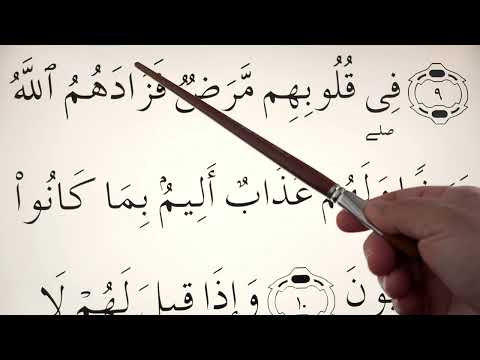 ٩ فِى قُلُوبِهِم مَّرَضٌ فَزَادَهُمُ ٱللَّهُ
صلے
وَلَهُمْ عَذَابٌ أَلِيمٌۢ بِمَا كَانُوا۟
بُونَ ١٠ وَإِذَا قِيلَ لَهُمْ لَا